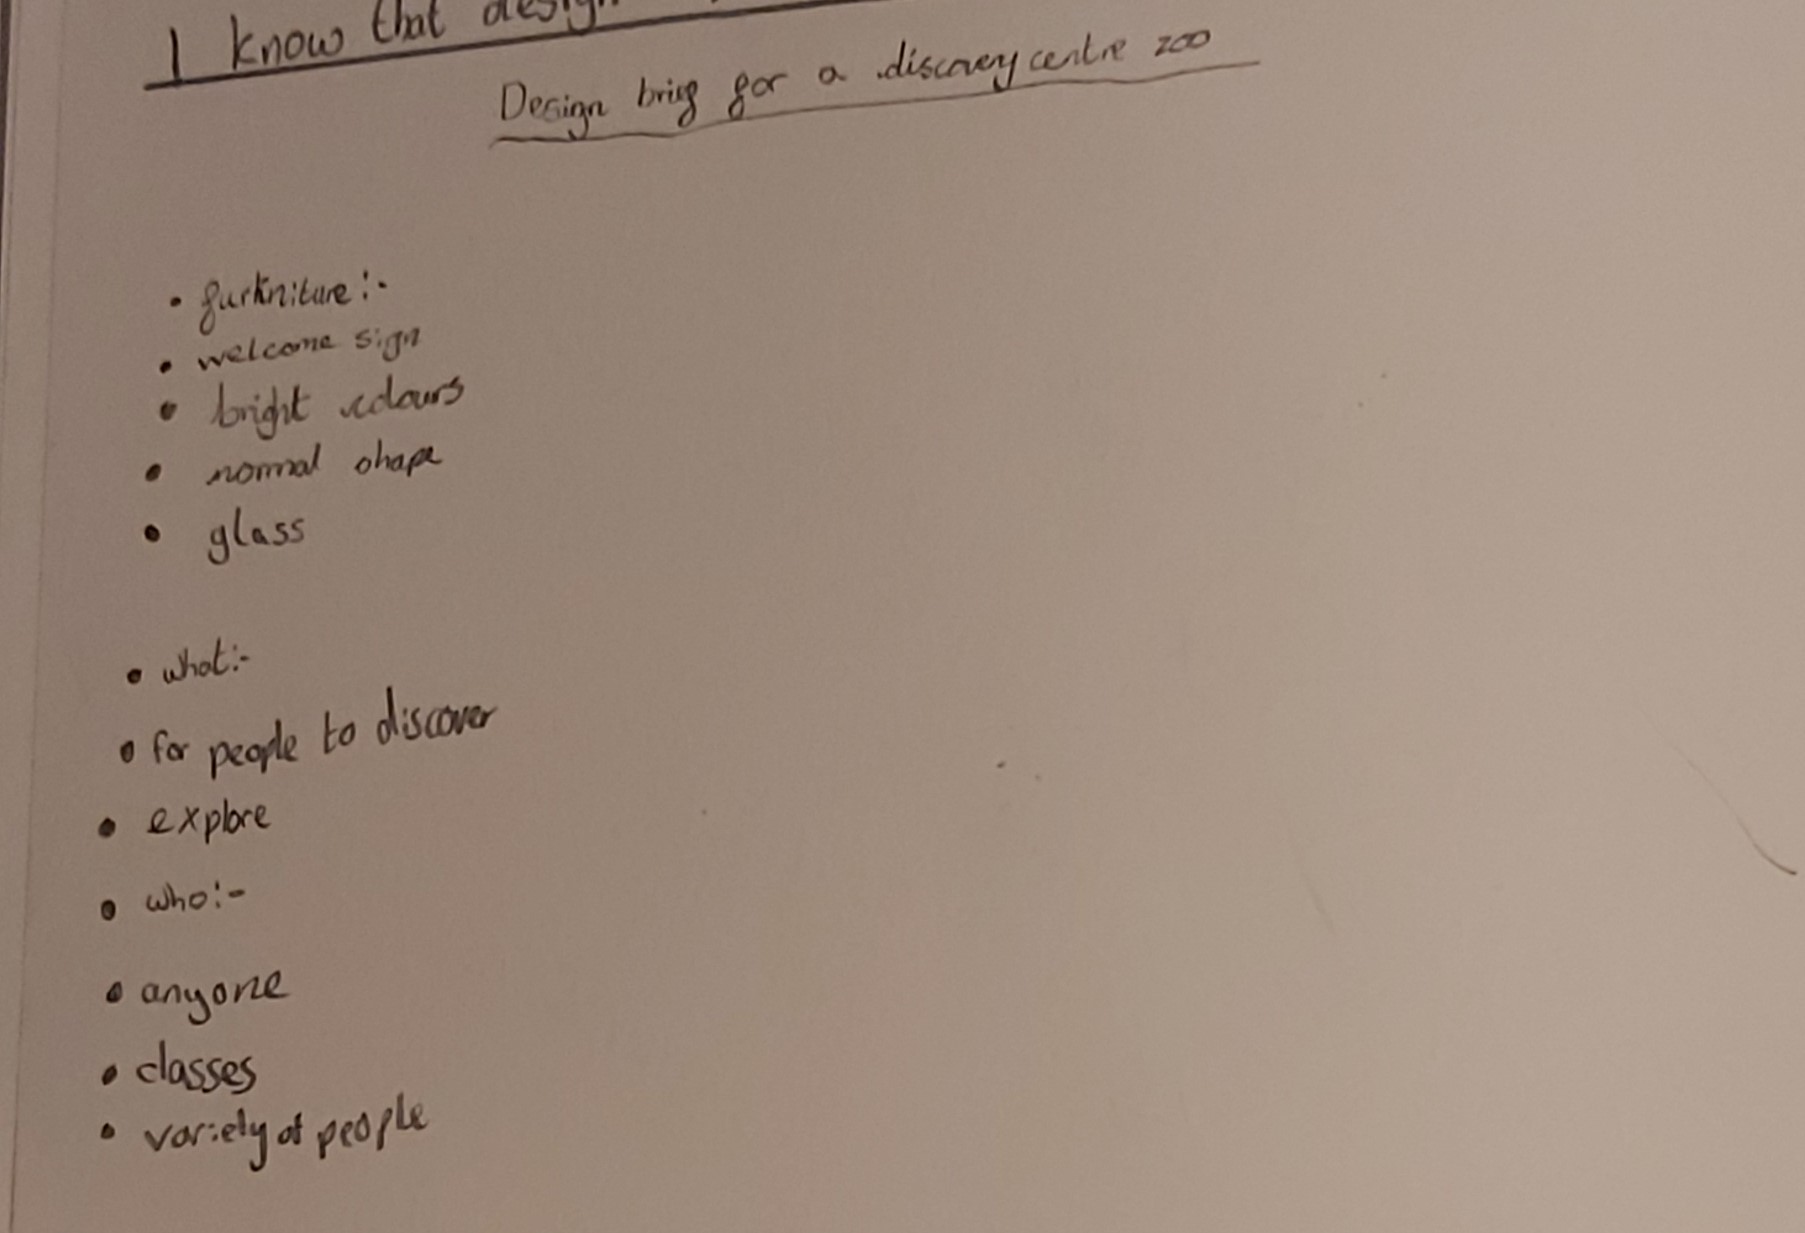 I know that design
Design brief for a discovery centre zoo
• furkniture:-
• welcome sign
• bright colours
• normal shape
• glass
• what:-
• for people to discover
• explore
• who:-
• anyone
• classes
• variety of people